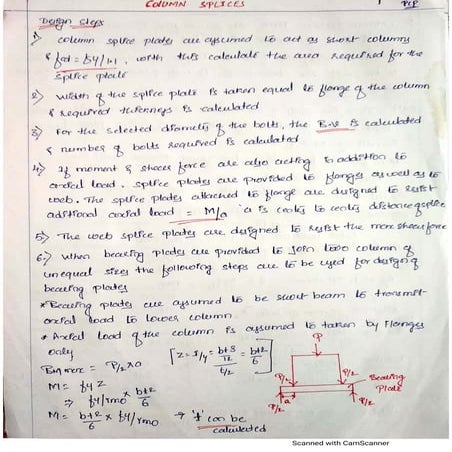 COLUMN SPLICES
Design steps
1) column splice plates are assumed to act as short columns
& fcd = fy/1.1, with this calculate the area required for the
splice plate
2) width of the splice plate is taken equal to flange of the column
& required thickness is calculated
3) For the selected diameter of the bolts, the B.V is calculated
& number of bolts required is calculated
4) If moment & shear force are also acting in addition to
axial load, splice plates are provided to flanges as well as to
web. The splice plates attached to flange are designed to resist
aditional axial load = M/a 'a is c to c distance of splice
5) The web splice plates are designed to resist the max shear force
6) when bearing plates are provided to join two column of
unequal sizes the following steps are to be used for design of
bearing plates
* Bearing plates are assumed to be short beam to transmit
axial load to lower column.
* Axial load of the column is assumed to taken by Flanges
only
= P/2 x a
M = fy Z
P
P/2
P/2
a
P/2
P/2
Bearing
Plate
→ 't' can be
calculated
Scanned with CamScanner